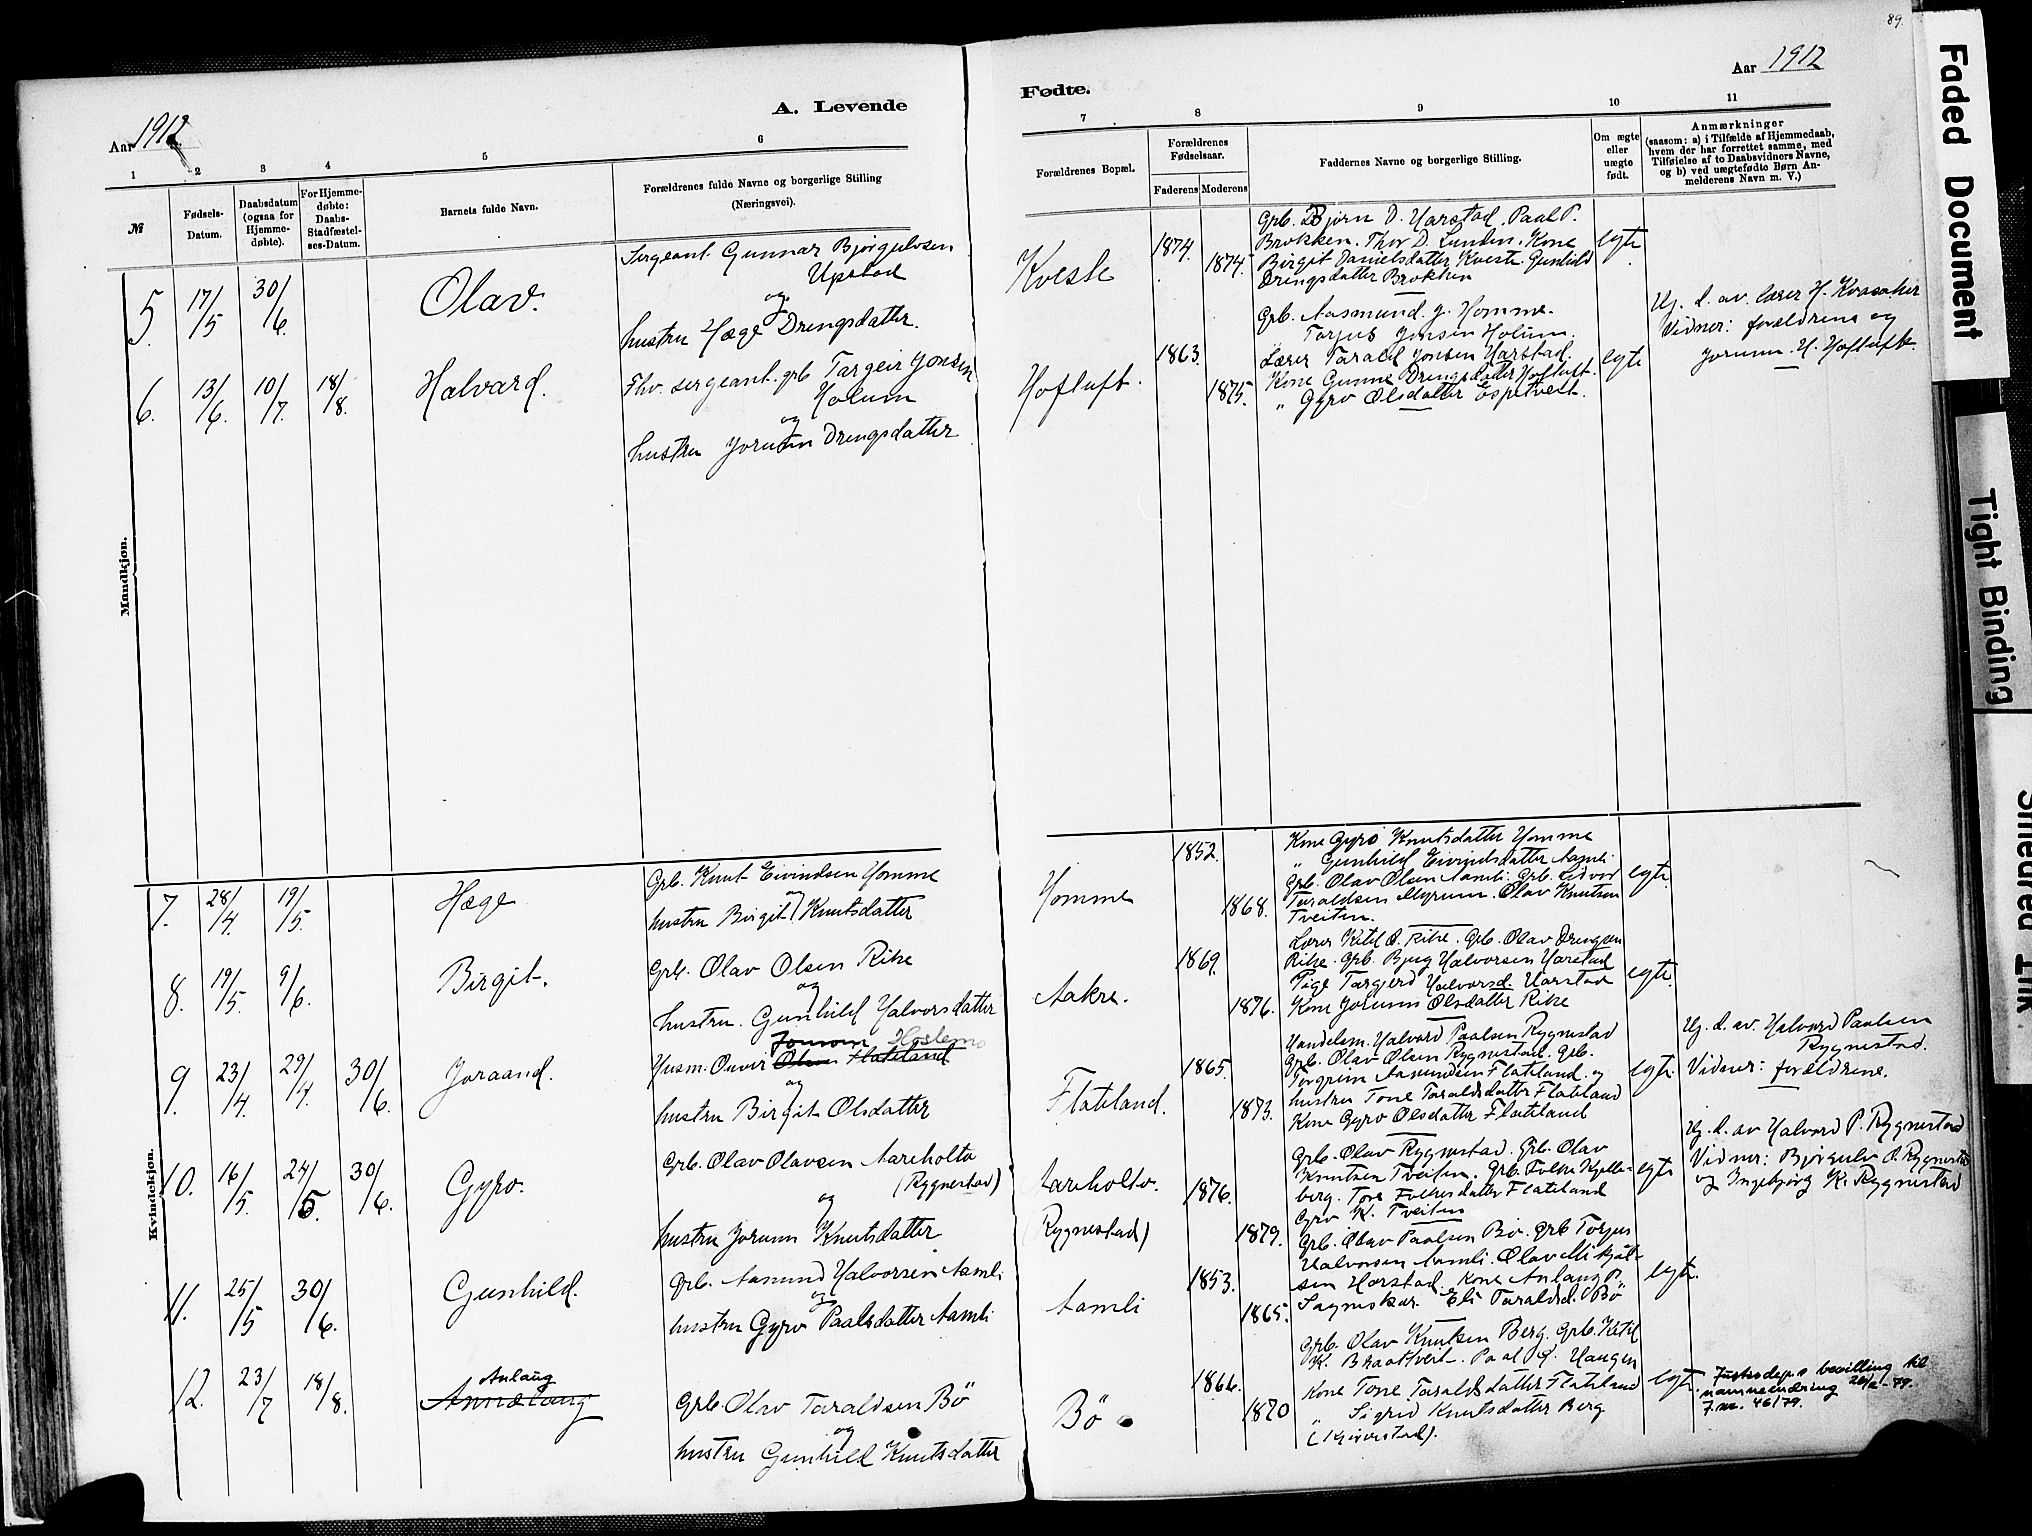 89.
Aar 1912
A. Levende
Fødte.
Aar 1912
1 2 3 4 5 6 7 8 9 10 11
№
Fødsels-
Datum.
Daabsdatum
(ogsaa for
Hjemme-
døbte).
For Hjemme-
døbte:
Daabs-
Stadfæstel-
ses-Datum.
Barnets fulde Navn.
Forældrenes fulde Navne og borgerlige Stilling
(Næringsvei).
Forældrenes Bopæl.
Forældrenes
Fødselsaar.
Faderens Moderens
Faddernes Navne og borgerlige Stilling.
Om ægte
eller
uægte
født.
Anmærkninger
(saasom: a) i Tilfælde af Hjemmedaab,
hvem der har forrettet samme, med
Tilføielse af to Daabsvidners Navne,
og b) ved uægtefødte Børn An-
melderens Navn m. V.)
Mandkjøn.
5. 17/5 30/6. Olav.
Sergeant Gunnar Bjørgulvsen
Upstad
og
hustru Hæge Drengsdatter.
Kveste
1874.
1874.
Grb. Bjørn D. Harstad. Paal P.
Brokken. Thor D. Lunden. Kone
Birgit Danielsdatter Kveste. Gunhild
Drengsdatter Brokken
egte.
6. 13/6. 10/7. 18/8. Halvard.
Fhv. sergeant. grb Targeir Jonsen
Holum
og
hustru Jorunn Drengsdatter
Hoftuft.
1863.
1875.
Grb. Aasmund. J. Homme.
Torjus Jonsen Holum.
Lærer Tarald Jonsen Harstad.
Kone Gunne Drengsdatter Hoftuft.
" Gyro Olsdatter Espetveit.
egte
Hj. d. av lærer H. Kvasaker
Vidner: forældrene og
Jorunn H. Hoftuft.
Kvindekjøn.
7. 28/4. 19/5. Hæge
Grb. Knut Eivindsen Homme
og
hustru Birgit Knutsdatter
Homme
1852.
1868.
Kone Gyro Knutsdatter Homme
" Gunhild Eivindsdatter Aamli
Grb. Olav Olsen Aamli. Grb. Ledvor
Taraldsen Myrum. Olav Knutson
Tveiten.
egte.
8. 19/5. 9/6. Birgit.
Grb. Olav Olsen Rike
og
hustru. Gunhild Halvorsdatter
Aakre.
1869.
1876.
Lærer Ketil O. Rike. Grb. Olav Drengsen
Rike. Grb. Bjug Halvorsen Harstad
Pige Targjerd Halvorsd. Harstad
Kone Jorunn Olsdatter Rike
egte.
9. 23/4. 29/4. 30/6. Joraand.
Jonson Hoslemo
Husm. Onvir Olsen Flateland
og
hustru Birgit Olsdatter
Flateland.
1865.
1873.
Handelsm. Halvard Paalsen Rygnestad
Grb. Olav Olsen Rygnestad. Grb.
Torgrim Aasmundsen Flateland. og
hustru Tone Taraldsdatter Flateland
Kone Gyro Olsdatter Flateland
egte.
Hj. d. av. Halvard Paalsen
Rygnestad.
Vidner: forældrene.
10. 16/5. 24/5. 30/6. Gyro.
Grb. Olav Olavsen Aareholto
(Rygnestad)
og
hustru Jorunn Knutsdatter
Aareholto.
(Rygnestad)
1876.
1879.
Grb. Olav Rygnestad. Grb. Olav
Knutsen Tveiten. Grb. Folke Kjelle-
berg. Tone Folkesdatter Flateland
Gro K. Tveiten
egte
Hj. d. av Halvard P. Rygnestad
Vidner: Bjørgulv O. Rygnestad
og Ingebjørg K. Rygnestad
11. 25/5 30/6. Gunhild.
Grb. Aamund Halvorsen Aamli
og
hustru Gyro Paalsdatter Aamli
Aamli
1853.
1865.
Grb. Olav Paalsen Bø. Grb Torjus
Halvorsen Aamli. Olav Mikjal-
sen Harstad. Kone Anlaug P.
Sagneskar. Eli Taraldsd. Bø
egte.
12. 23/7 18/8. Anlaug
Annelaug
Grb. Olav Taraldsen Bø
og
hustru Gunhild Knutsdatter
Bø
1866.
1870
Grb. Olav Knutsen Berg. Grb. Ketil
K. Braattveit. Paal G. Haugen
Kone Tone Taraldsdatter Flateland
" Sigrid Knutsdatter Berg
egte.
Justisdep.s bevilling til
navneendring 26/2-79.
J.nr. 46179.
Faded Document
Tight Binding